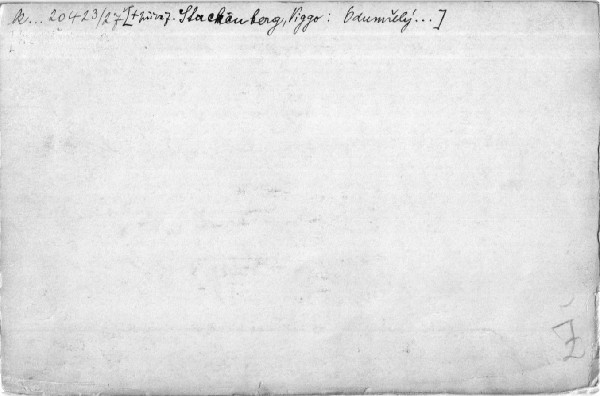 k... 20423/27 [+ 2úvaz. Stackenberg, Viggo: Odumřelý...]
Ž